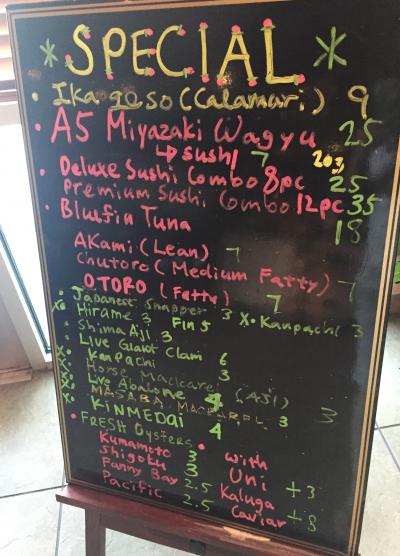 * SPECIAL *
• Ika geso (Calamari) 9
• A5 Miyazaki Wagyu 25
↳ Sushi 7
• Deluxe Sushi Combo 8pc 25
Premium Sushi Combo 12pc 35
• Bluefin Tuna 18
Akami (Lean) 7
chutoro (Medium Fatty) 7
OTORO (Fatty) 7
• Japanese Snapper 3
x• Hirame 3 Fin 5 x• Kanpachi 3
• Shima Aji 3
• Live Giant Clam 6
x• Kanpachi 3
x• Horse Mackarel (AJI) 3
x• Live Abalone 4
x• MASABA, MACKAREL 3
x• KINMEDAI 4
• FRESH Oysters •
Kumamoto 3 with
Shigoku 3 Uni +3
Fanny Bay 2.5 Kaluga
Pacific 2.5 Caviar +8